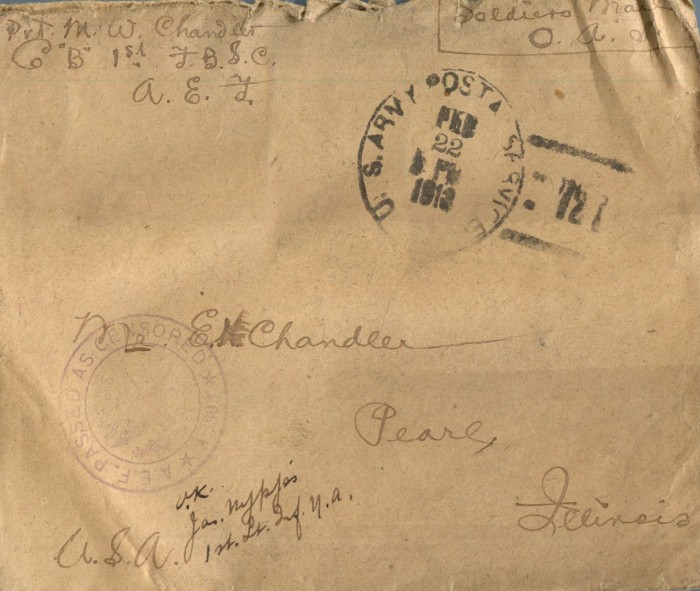 Pvt. M. W. Chandler
Co "B" 1st F.B.S.C.
A. E. F.
Soldiers Mail
O. A. S.
U. S. ARMY POSTAL SERVICE
FEB
22
1918
Mr. E. N. Chandler
Pearl,
Illinois
U.S.A.
A.E.F. PASSED AS CENSORED
O.K.
Jas.
1st. Lt. Inf. N.A.